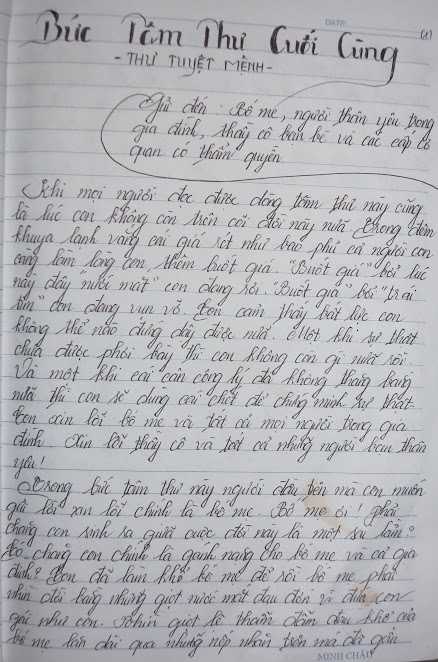 DATE:
(1)
Bức Tâm Thư Cuối Cùng
- THƯ TUYỆT MỆNH -
Gửi đến: Bố mẹ, người thân yêu trong
gia đình, thầy cô bạn bè và các cấp cơ
quan có thẩm quyền
Khi mọi người đọc được dòng tâm thư này cũng
là lúc con không còn trên cõi đời này nữa. Trong đêm
khuya lạnh vắng cái giá rét như bao phủ cả người con
càng làm lòng con thêm buốt giá. "Buốt giá" bởi lúc
này đây nước mắt con đang rơi. "Buốt giá" bởi "trái
tim" con đang vụn vỡ. Con cảm thấy bất lực con
không thể nào đứng dậy được nữa. Một khi sự thật
chưa được phơi bày thì con không còn gì nữa rồi.
Và một khi cái cán công lý đã không thăng bằng
nữa thì con sẽ dùng cái chết để chứng minh sự thật.
Con xin lỗi bố mẹ và tất cả mọi người trong gia
đình. Xin lỗi thầy cô và tất cả những người bạn thân
yêu!
Trong bức tâm thư này người đầu tiên mà con muốn
gửi lời xin lỗi chính là bố mẹ. Bố mẹ ơi! phải
chăng con sinh ra giữa cuộc đời này là một sai lầm?
Có chăng con chính là gánh nặng cho bố mẹ và cả gia
đình? Con đã làm khổ bố mẹ để rồi bố mẹ phải
nhìn đời bằng những giọt nước mắt đau đớn vì đứa con
gái như con. Nhìn giọt lệ thấm đẫm đau khổ của
bố mẹ lăn dài qua những nếp nhăn trên má đã gần
MINH CHÂU